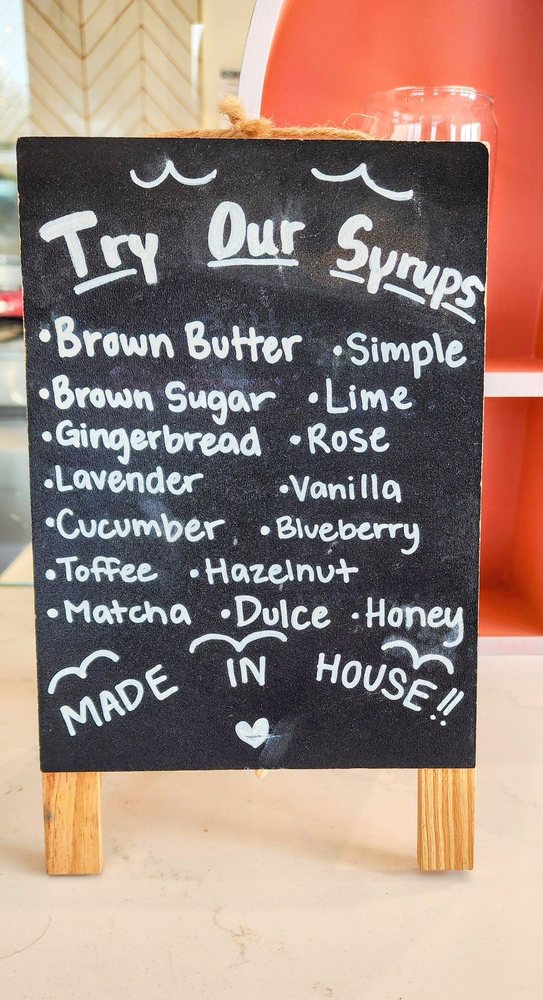 Try Our Syrups
•Brown Butter •Simple
•Brown Sugar •Lime
•Gingerbread •Rose
•Lavender •Vanilla
•Cucumber •Blueberry
•Toffee •Hazelnut
•Matcha •Dulce •Honey
MADE IN HOUSE!!